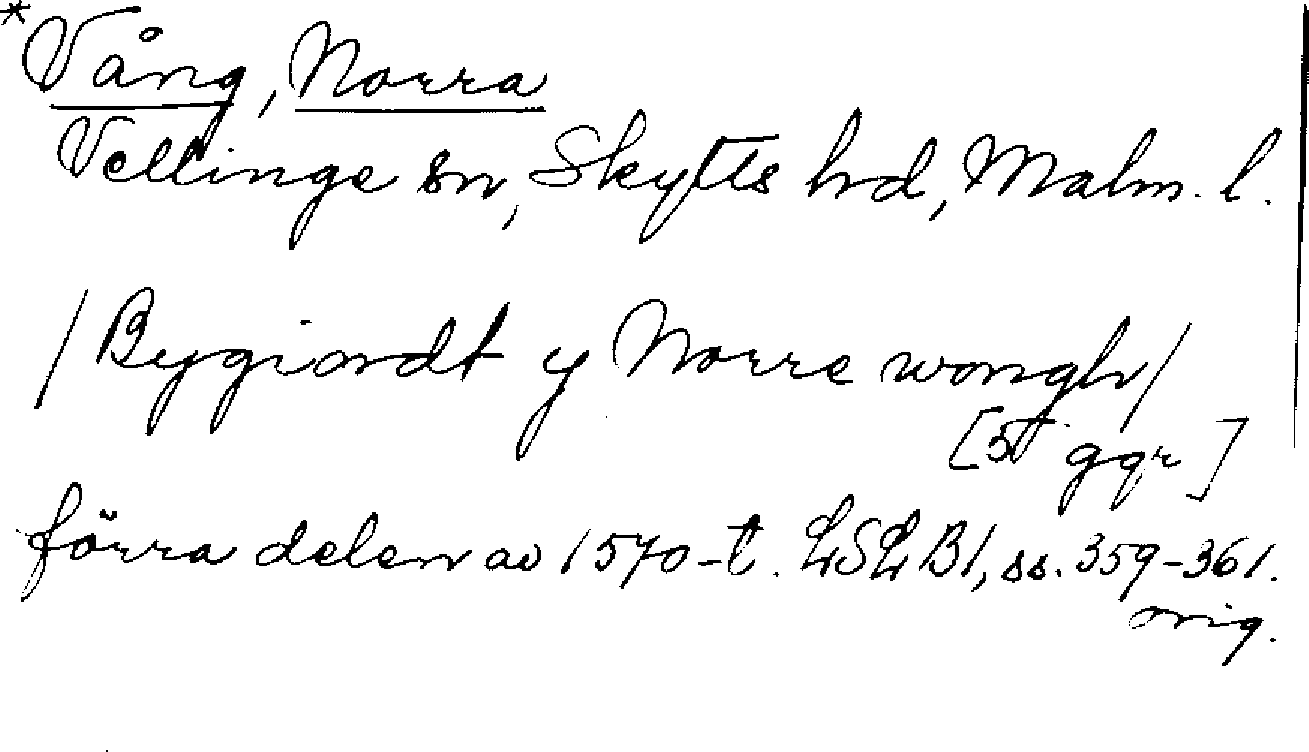 *Vång, Norra
Vellinge sn, Skytts hd, Malm. l.
/Bygiordt y Norre wongh/
[5 ggr]
förra delen av 1570-t. LSLB1, ss. 359-361.
orig.